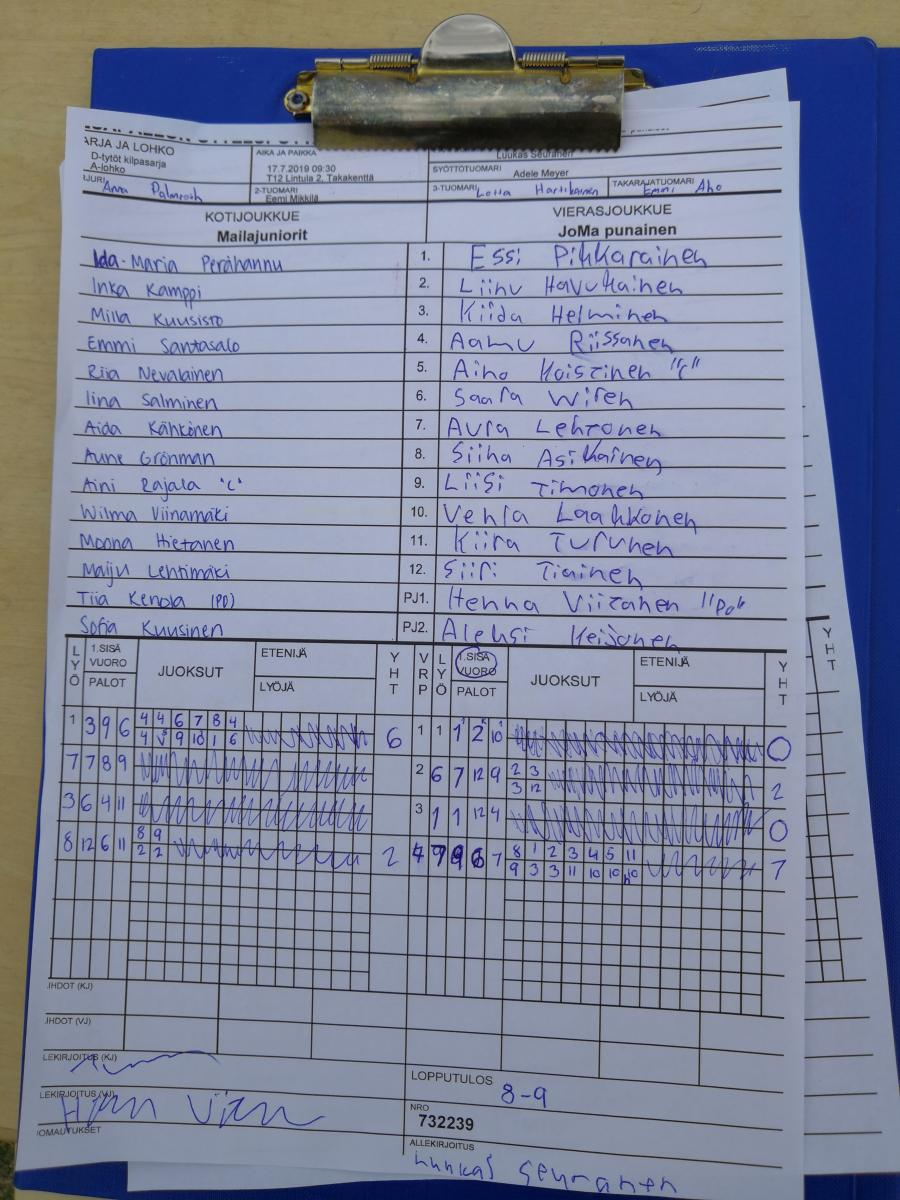 ARJA JA LOHKO
D-tytöt kilpasarja
A-lohko
AIKA JA PAIKKA
17.7.2019 09:30
T12 Lintula 2, Takakenttä
Luukas Seuranen
SYÖTTÖTUOMARI
Adele Meyer
Anna Palmroth
2-TUOMARI
Eemi Mikkilä
3-TUOMARI Lotta Hartikainen
TAKARAJATUOMARI Emmi Aho
KOTIJOUKKUE VIERASJOUKKUE
Mailajuniorit JoMa punainen
Ida-Maria Perähannu 1. Essi Pikkarainen
Inka Kamppi 2. Liinu Havukainen
Milla Kuusisto 3. Kiida Helminen
Emmi Santasalo 4. Aamu Riissanen
Riia Nevalainen 5. Aino Koistinen "C"
Iina Salminen 6. Saara Wiren
Aida Kähkönen 7. Aura Lehtonen
Aune Grönman 8. Siina Asikainen
Aini Rajala "C" 9. Liisi Timonen
Wilma Viinamäki 10. Venla Laakkonen
Moona Hietanen 11. Kiira Turunen
Maiju Lehtimäki 12. Siiri Tiainen
Tiia Kenola (PJ) PJ1. Henna Viitanen
Sofia Kuusinen PJ2. Aleksi Keijonen
LYÖ 1.SISÄ VUORO PALOT JUOKSUT ETENIJÄ LYÖJÄ YHT VRP LYÖ 1.SISÄ VUORO PALOT JUOKSUT ETENIJÄ LYÖJÄ YHT
1 3 9 6 4 4 6 7 8 4 6 1 1 1 2 10 0
7 7 8 9 2 6 7 12 9 2 3 2
3 12
3 6 4 11 3 1 1 12 4 0
8 12 6 11 8 9 2 4 7 8 1 2 3 4 5 11 7
2 2 9 3 3 11 10 10 10
IHDOT (KJ)
IHDOT (VJ)
LEKIRJOITUS (KJ)
LEKIRJOITUS (VJ)
OMAUTUKSET
LOPPUTULOS
8-9
NRO
732239
ALLEKIRJOITUS
Luukas Seuranen
YHT